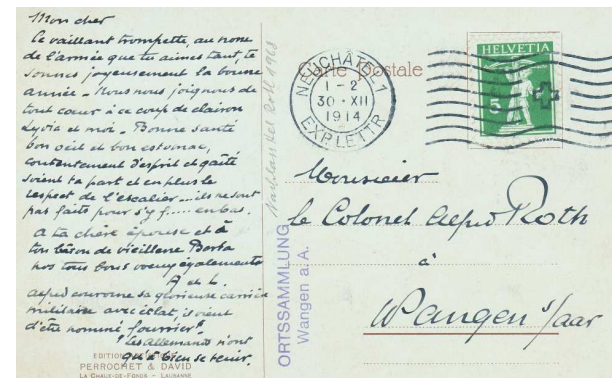 Mon cher
Ce vaillant trompette, au nom
de l'armée que tu aimes tant, te
sonnes joyeusement la bonne
année - Nous nous joignons de
tout cœur à ce coup de clairon
Lydia et moi - Bonne santé
bon œil et bon estomac,
contentement d'esprit et gaité
soient ta part et en plus le
respect de l'escalier .... ils ne sont
pas faits pour s'y f..... en bas.
A ta chère épouse et à
ton bâton de vieillesse Berta
nos tous bons vœux également
A et L.
Alfred couronne sa glorieuse carrière
militaire avec éclat, il vient
d'être nommé fourrier!
Les allemands n'ont
qu'à bien se tenir.
EDITION
PERROCHET & DAVID
LA CHAUX-DE-FONDS - LAUSANNE
Nachlass Roth 1968
ORTSSAMMLUNG
Wangen a. A.
Carte postale
NEUCHÂTEL 1
1-2
30·XII
1914
EXP. LETTR.
HELVETIA
5
Monsieur
le Colonel Alfred Roth
à
Wangen s/aar